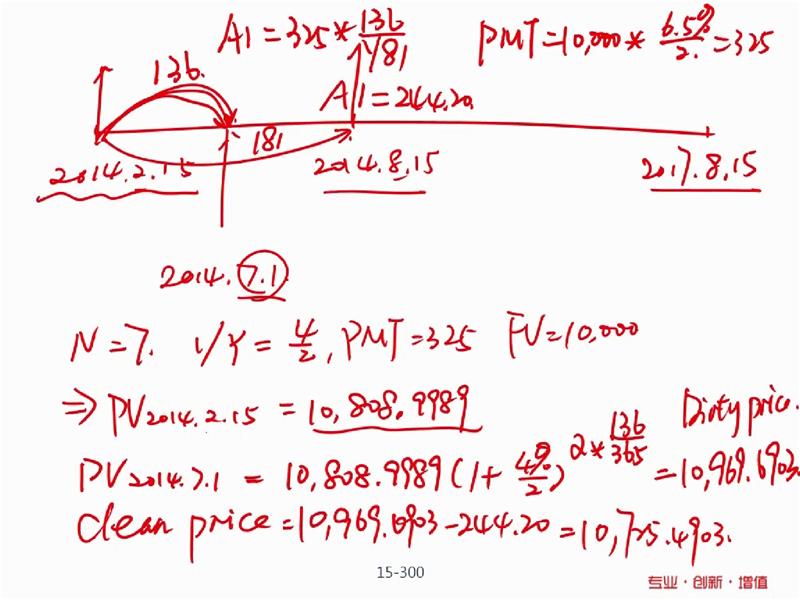 AI = 325 * 136/181
PMT = 10,000 * 6.5%/2. = 325
136.
AI = 244.20
181
2014.2.15
2014.8.15
2017.8.15
2014.7.1
N = 7. I/Y = 4/2, PMT = 325 FV = 10,000
⇒ PV2014.2.15 = 10,808.9989
Dirty price.
PV2014.7.1 = 10,808.9989 (1 + 4%/2)^2*136/365 = 10,969.6903.
clean price = 10,969.6903 - 244.20 = 10,725.4903.
15-300
专业·创新·增值